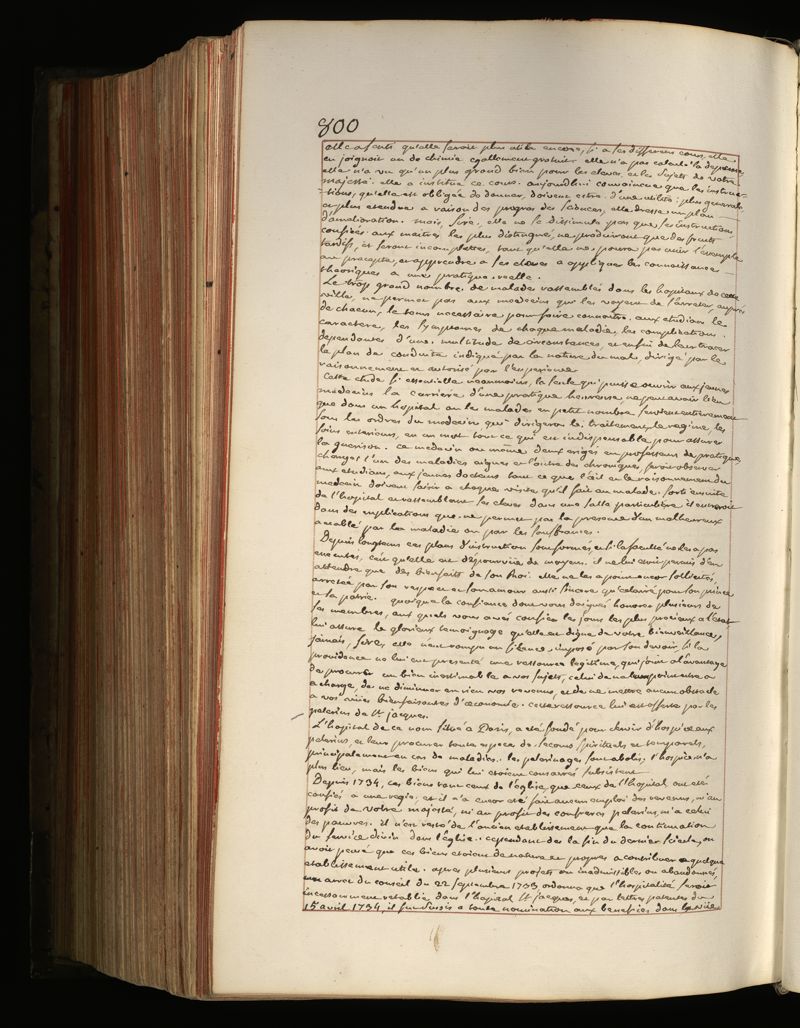 800
elle a senti qu'elle seroit plus utile encore, si a ses differens cours, elle
en joignoit un de chimie egallement gratuit. elle n'a pas calculé la depense,
elle n'a vu qu'un plus grand bien pour les eleves et les sujets de votre
majesté. elle a institué ce cours. aujourdhui convaincue que les instruc=
=tions, qu'elle est obligée de donner, doivent estre d'une utilité plus generale
et plus etendue a raison des progres des sciences, elle dresse un plan
d'amelioration. mais, sire, elle ne se dissimule pas que ses instructions
confiées aux maitres les plus distingués, ne produiront que des fruits
tardifs, et seront incomplettes, tant qu'elle ne poura pas unir l'exemple
au precepte, et apprendre a ses eleves a appliquer les connoissances
theoriques a une pratique reelle.
Le trop grand nombre de malades rassemblés dans les hopitaux de cette
ville, ne permet pas aux medecins qui les voyent de s'arreter, auprès
de chacun, le tems necessaire pour faire connoitre aux etudians le
caractere, les symptomes de chaque maladie, les complications
dependantes d'une multitude de circonstances, et enfin de leur tracer
le plan de conduite indiqué par la nature du mal, dirigé par le
raisonnement et autorisé par l'experience
Cette etude si essentielle neanmoins, la seule qui puisse ouvrir aux jeunes
medecins la carriere d'une pratique heureuse ne peut avoir lieu
que dans un hospital ou les malades en petit nombre seroient entierement
sous les ordres du medecin qui dirigeroit le traitement, le regime, les
soins exterieurs, en un mot tout ce qui est indispensable pour assurer
la guerison. ce medecin ou meme deux erigés en professeurs de pratique,
chargés l'un des maladies aigues et l'autre des chroniques, feroit observer
aux etudians, aux jeunes docteurs tout ce que l'œil et le raisonnement du
medecin doivent saisir a chaque visite qu'il fait au malade. sorti ensuite
de l'hopital et rassemblant les eleves dans une salle particuliere il entreroit
dans des explications que ne permet pas la presence d'un malheureux
accablé par la maladie ou par les souffrances.
Depuis longtems ces plans d'instruction sont formés et si la faculté ne les a pas
executés, c'est qu'elle est dépourvue de moyens. il ne lui etoit permis d'en
attendre que des bienfaits de son Roi. elle ne les a point encor sollicités,
arretée par son respect et son amour aussi sincere qu'eclairé pour son prince
et la patrie. quoique la confiance dont vous daignés honorer plusieurs de
ses membres, aux quels vous avés confiés les jours les plus precieux a l'etat
lui assure le glorieux temoignage qu'elle est digne de votre bienveillance,
jamais, sire, elle n'eut rompu un silence imposé par son devoir, si la
providence ne lui eut presenté une ressource legitime, qui joint a l'avantage
de procurer un bien inestimable a vos sujets, celui de ne leur point estre a
a charge, de ne diminuer en rien vos revenus, et de ne mettre aucun obstacle
a vos vues bienfaisantes d'œconomie. cette ressource lui est offerte par les
pelerins de St jacques.
L'hopital de ce nom situé a Paris, a eté fondé pour servir d'hospice aux
pelerins, et leur procurer toute espece de secours spirituels et temporels,
principalement en cas de maladies. les pelerinages sont abolis, l'hospice n'a
plus lieu, mais les biens qui lui etoient consacrés subsistent
Depuis 1734, ces biens tant ceux de l'eglise, que ceux de l'hopital ont eté
confiés a une regie; et il n'a encor eté fait aucun emploi des revenus, ni au
profit de votre majesté, ni au profit des confreres pelerins, ni a celui
des pauvres. il n'est resté de l'ancien etablissement que la continuation
du service divin dans l'eglise. cependant des la fin du dernier siecle, on
avoit pensé que ces biens etoient de nature et propres a contribuer a quelque
etablissement utile. apres plusieurs projets ou inadmissibles ou abandonnés,
un arret du conseil du 22 septembre 1733 ordonna que l'hospitalité seroit
incessamment retablie dans l'hopital St jacques, et par lettres patentes du
15 avril 1734, il fut sursis a toute nomination aux benefices dans la ville